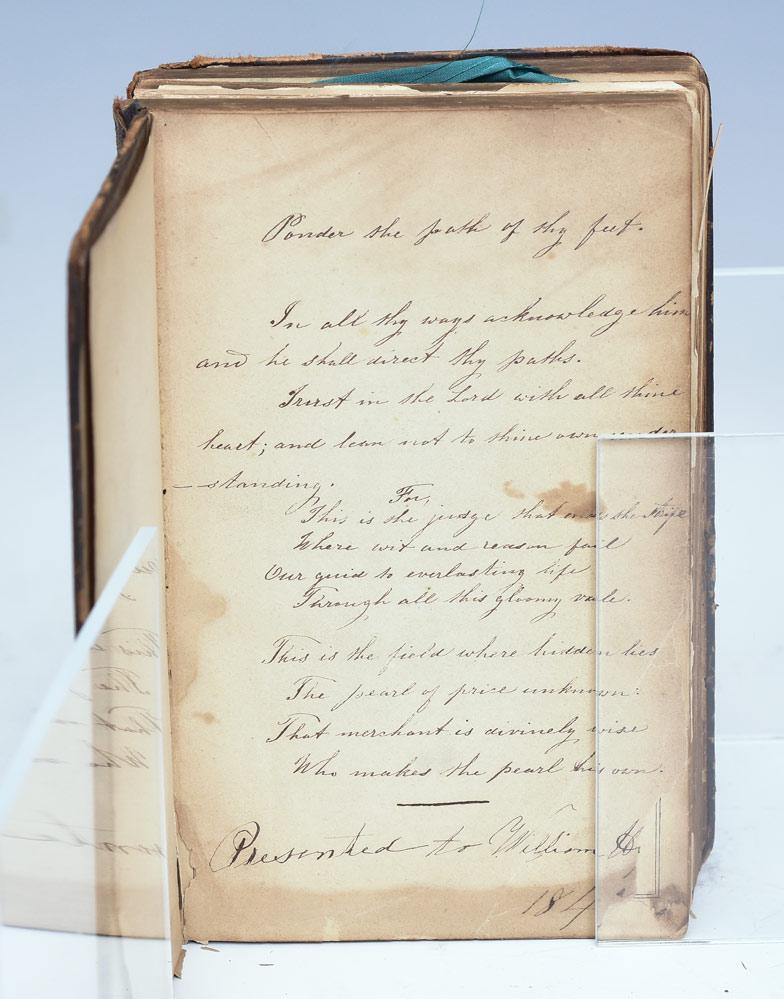 Ponder the path of thy feet.
In all thy ways acknowledge him
and he shall direct thy paths.
Trust in the Lord with all thine
heart; and lean not to thine own under
-standing.
For,
This is the judge that ends the strife
Where wit and reason fail
Our guid to everlasting life
Through all this gloomy vale.
This is the field where hidden lies
The pearl of price unknown:
That merchant is divinely wise
Who makes the pearl his own.
Presented to William H.
184